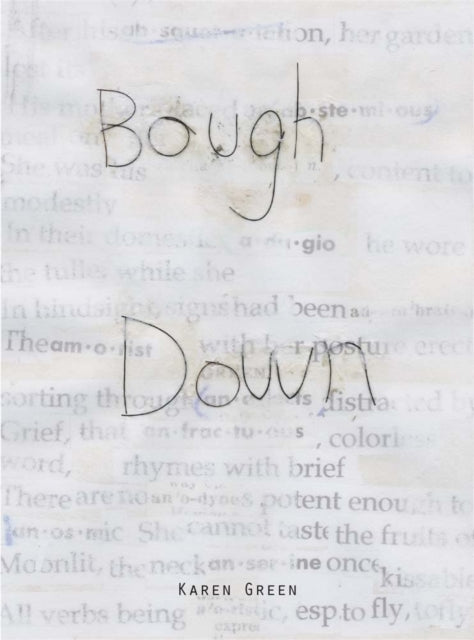 After his ab·squat·u·lation, her garden
lost its
Bough
His mother ab·ste·mi·ous
meal
She was , content to
modestly
In their domestic a·da·gio he wore
the tulle, while she
In hindsight, signs had been
The am·o·rist with her posture erect
Down
GREEN
sorting through an·e distracted by
Grief, that an·frac·tu·ous , colorless
word, rhymes with brief
There are no an'o·dynes potent enough to
an·os·mic She cannot taste the fruits of
Moonlit, the neck an·ser·ine once kissable
KAREN GREEN
All verbs being a·o·ristic, esp. to fly, to fly
expres